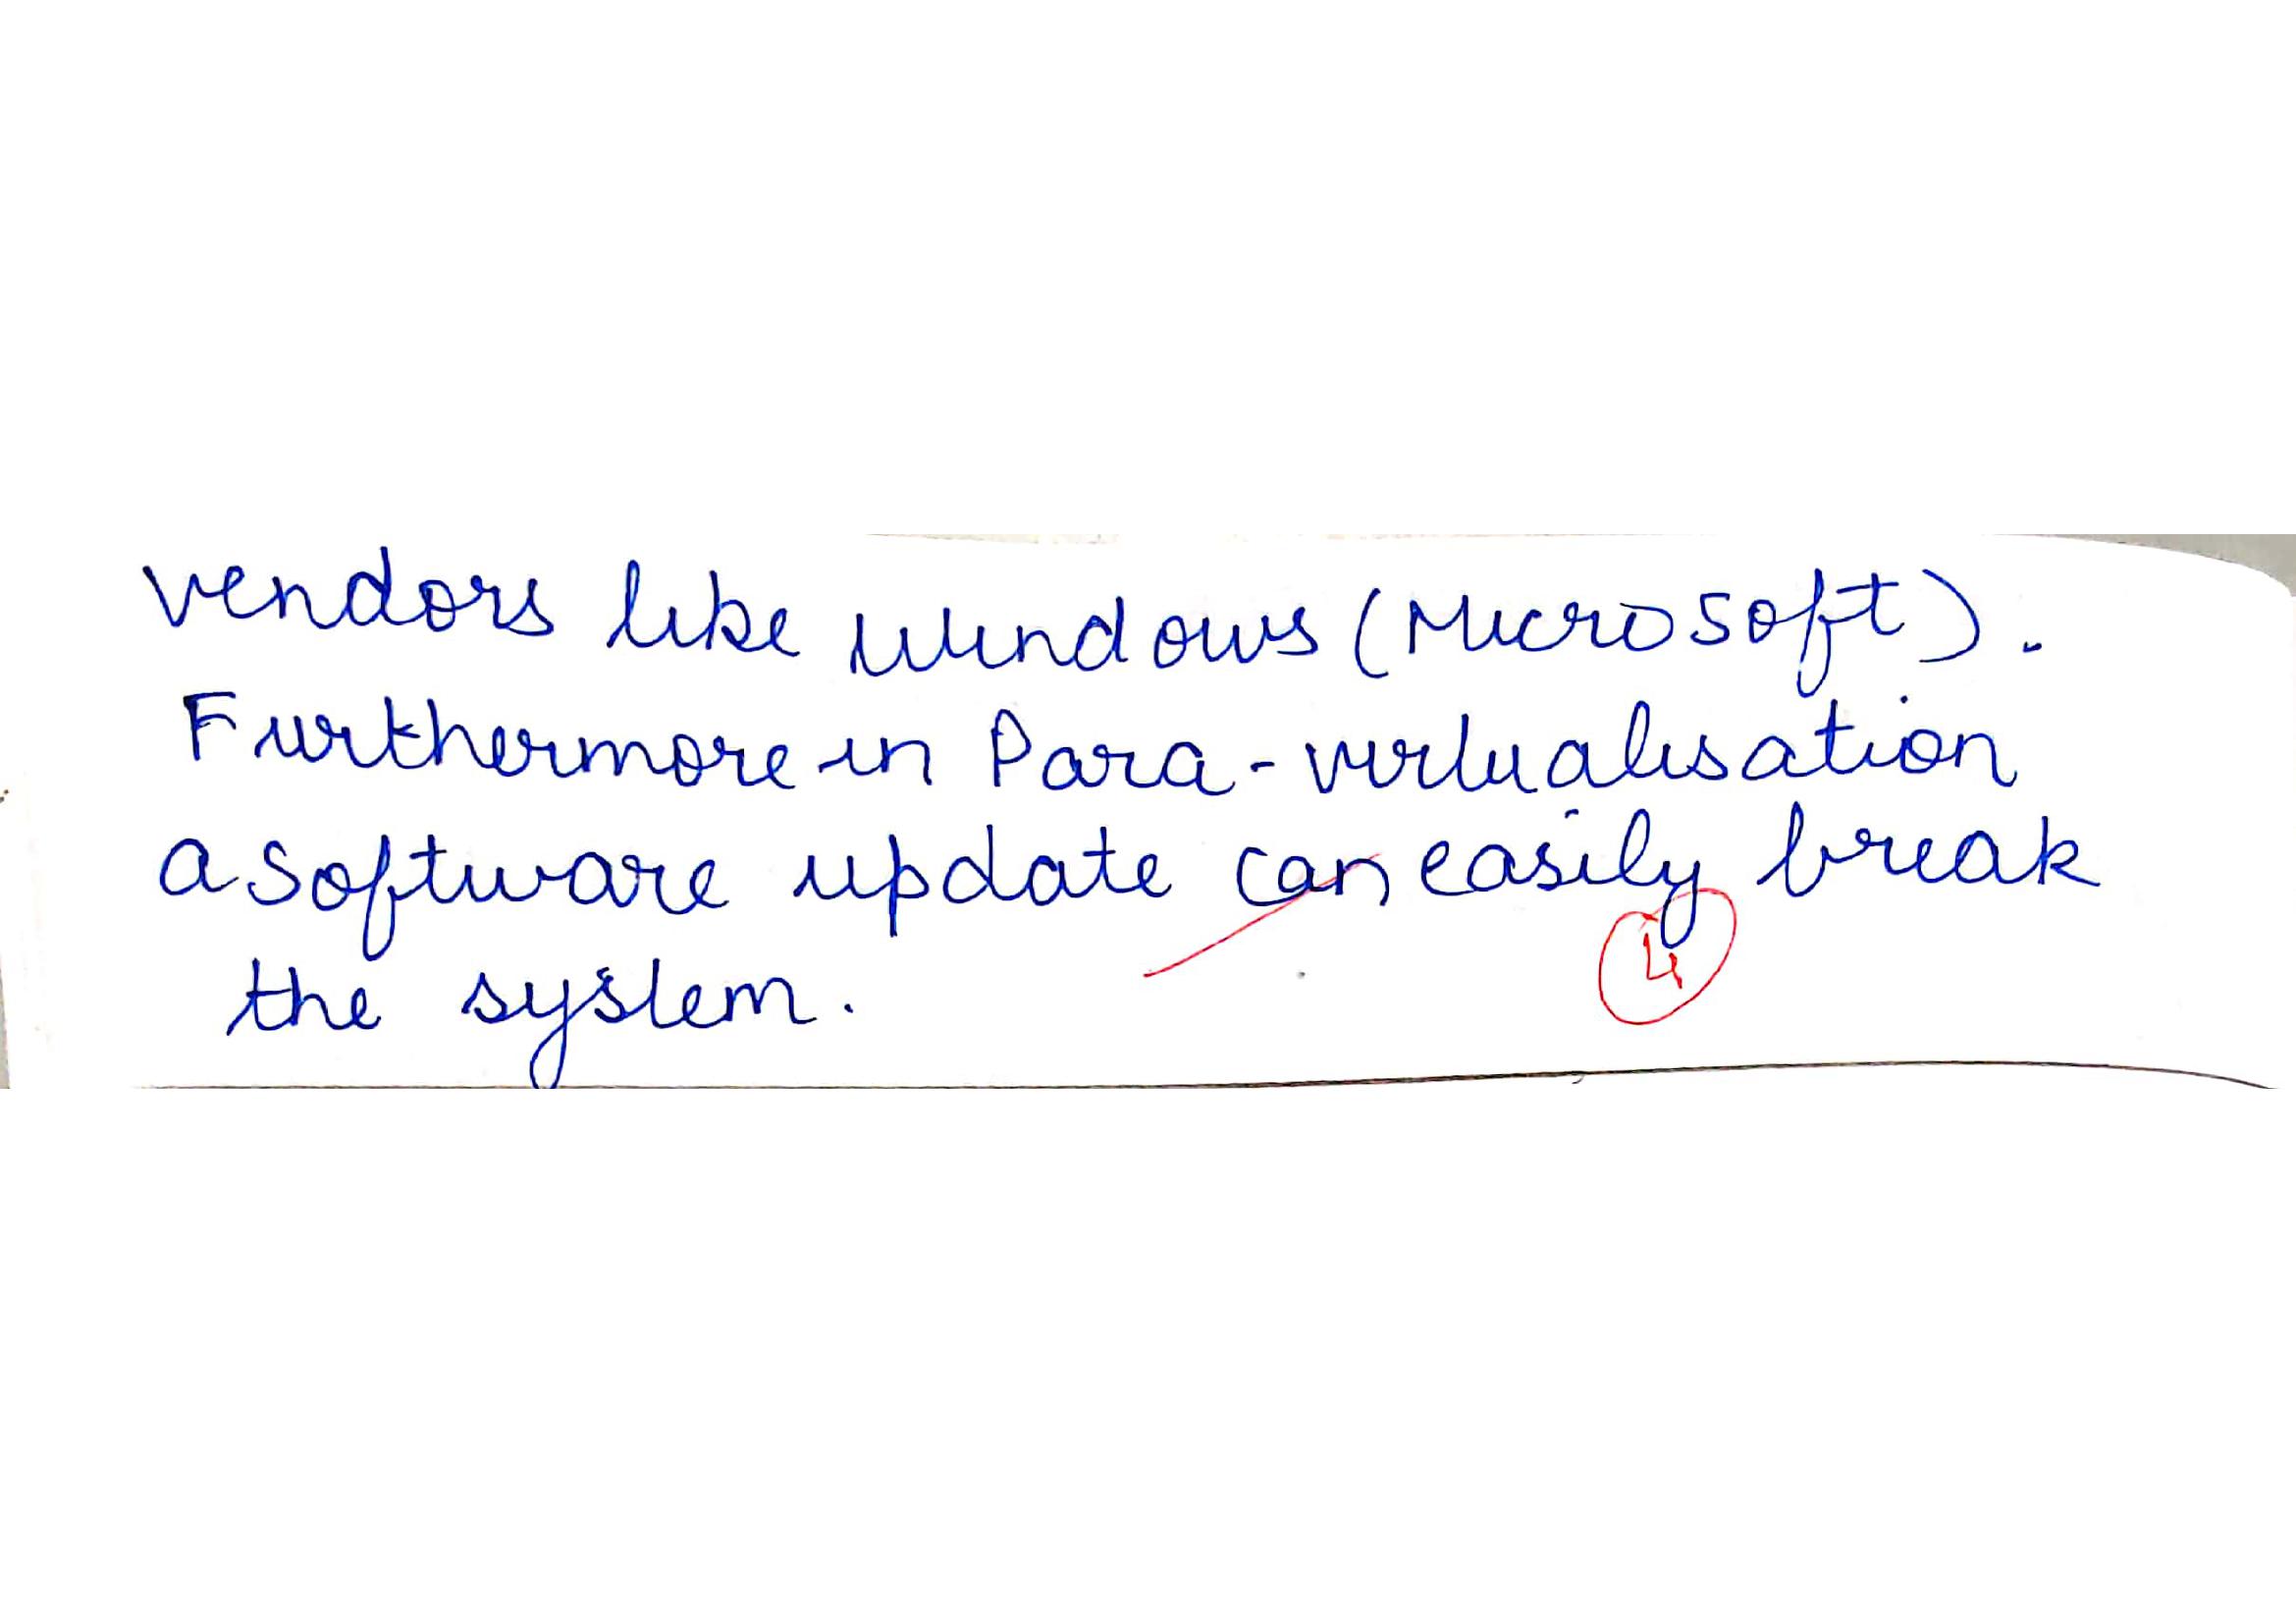 vendors like Windows (Microsoft).
Furthermore in Para-virtualisation
a software update can easily break
4
the system.